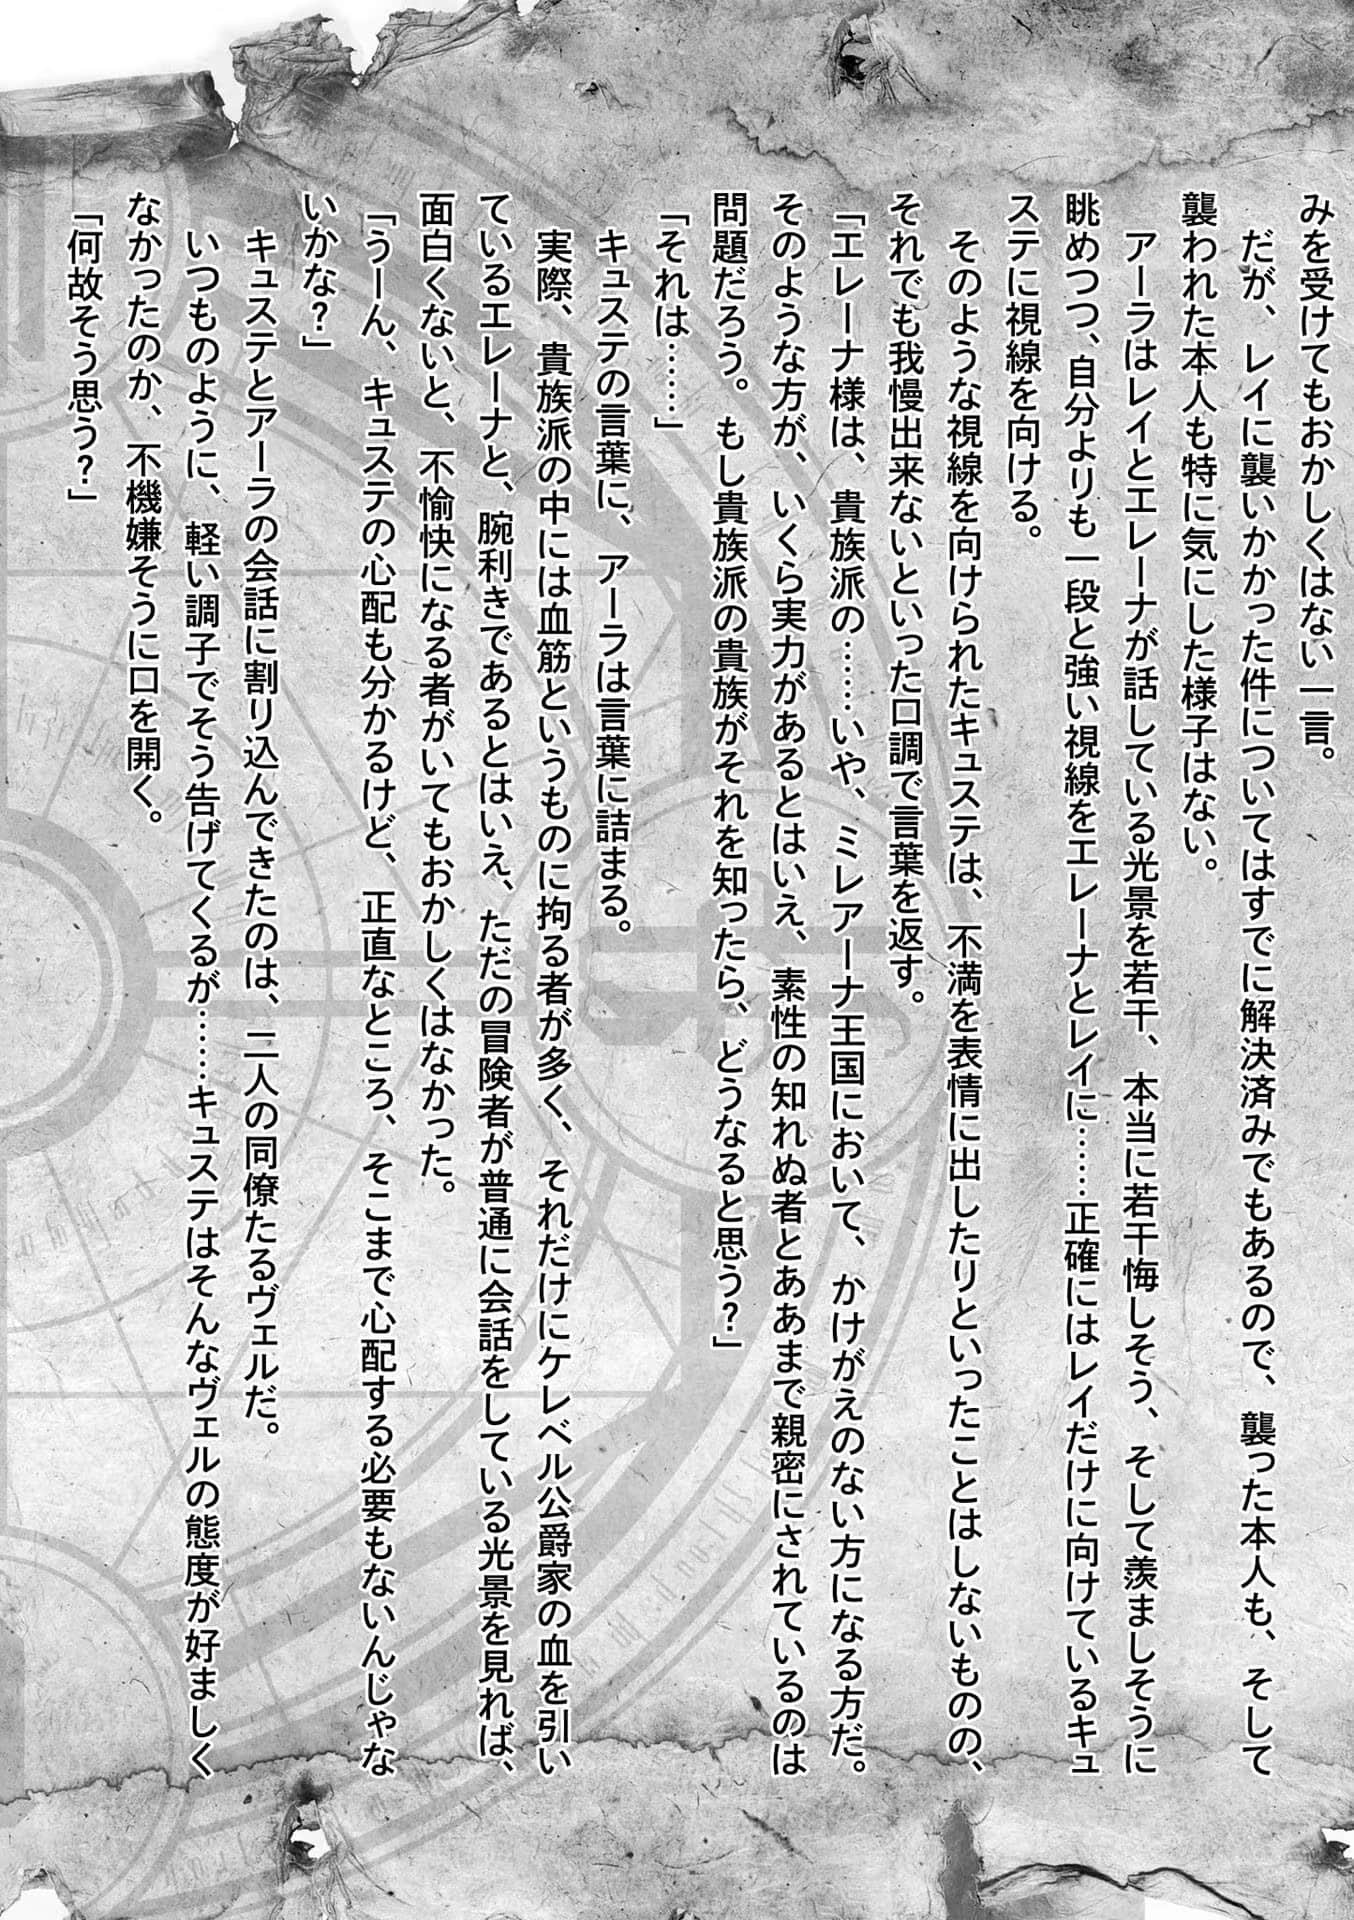 みを受けてもおかしくはない一言。
だが、レイに襲いかかった件についてはすでに解決済みでもあるので、襲った本人も、そして
襲われた本人も特に気にした様子はない。
アーラはレイとエレーナが話している光景を若干、本当に若干悔しそう、そして羨ましそうに
眺めつつ、自分よりも一段と強い視線をエレーナとレイに……正確にはレイだけに向けているキュ
ステに視線を向ける。
そのような視線を向けられたキュステは、不満を表情に出したりといったことはしないものの、
それでも我慢出来ないといった口調で言葉を返す。
「エレーナ様は、貴族派の……いや、ミレアーナ王国において、かけがえのない方になる方だ。
そのような方が、いくら実力があるとはいえ、素性の知れぬ者とああまで親密にされているのは
問題だろう。もし貴族派の貴族がそれを知ったら、どうなると思う？」
「それは……」
キュステの言葉に、アーラは言葉に詰まる。
実際、貴族派の中には血筋というものに拘る者が多く、それだけにケレベル公爵家の血を引い
ているエレーナと、腕利きであるとはいえ、ただの冒険者が普通に会話をしている光景を見れば、
面白くないと、不愉快になる者がいてもおかしくはなかった。
「うーん、キュステの心配も分かるけど、正直なところ、そこまで心配する必要もないんじゃな
いかな？」
キュステとアーラの会話に割り込んできたのは、二人の同僚たるヴェルだ。
いつものように、軽い調子でそう告げてくるが……キュステはそんなヴェルの態度が好ましく
なかったのか、不機嫌そうに口を開く。
「何故そう思う？」